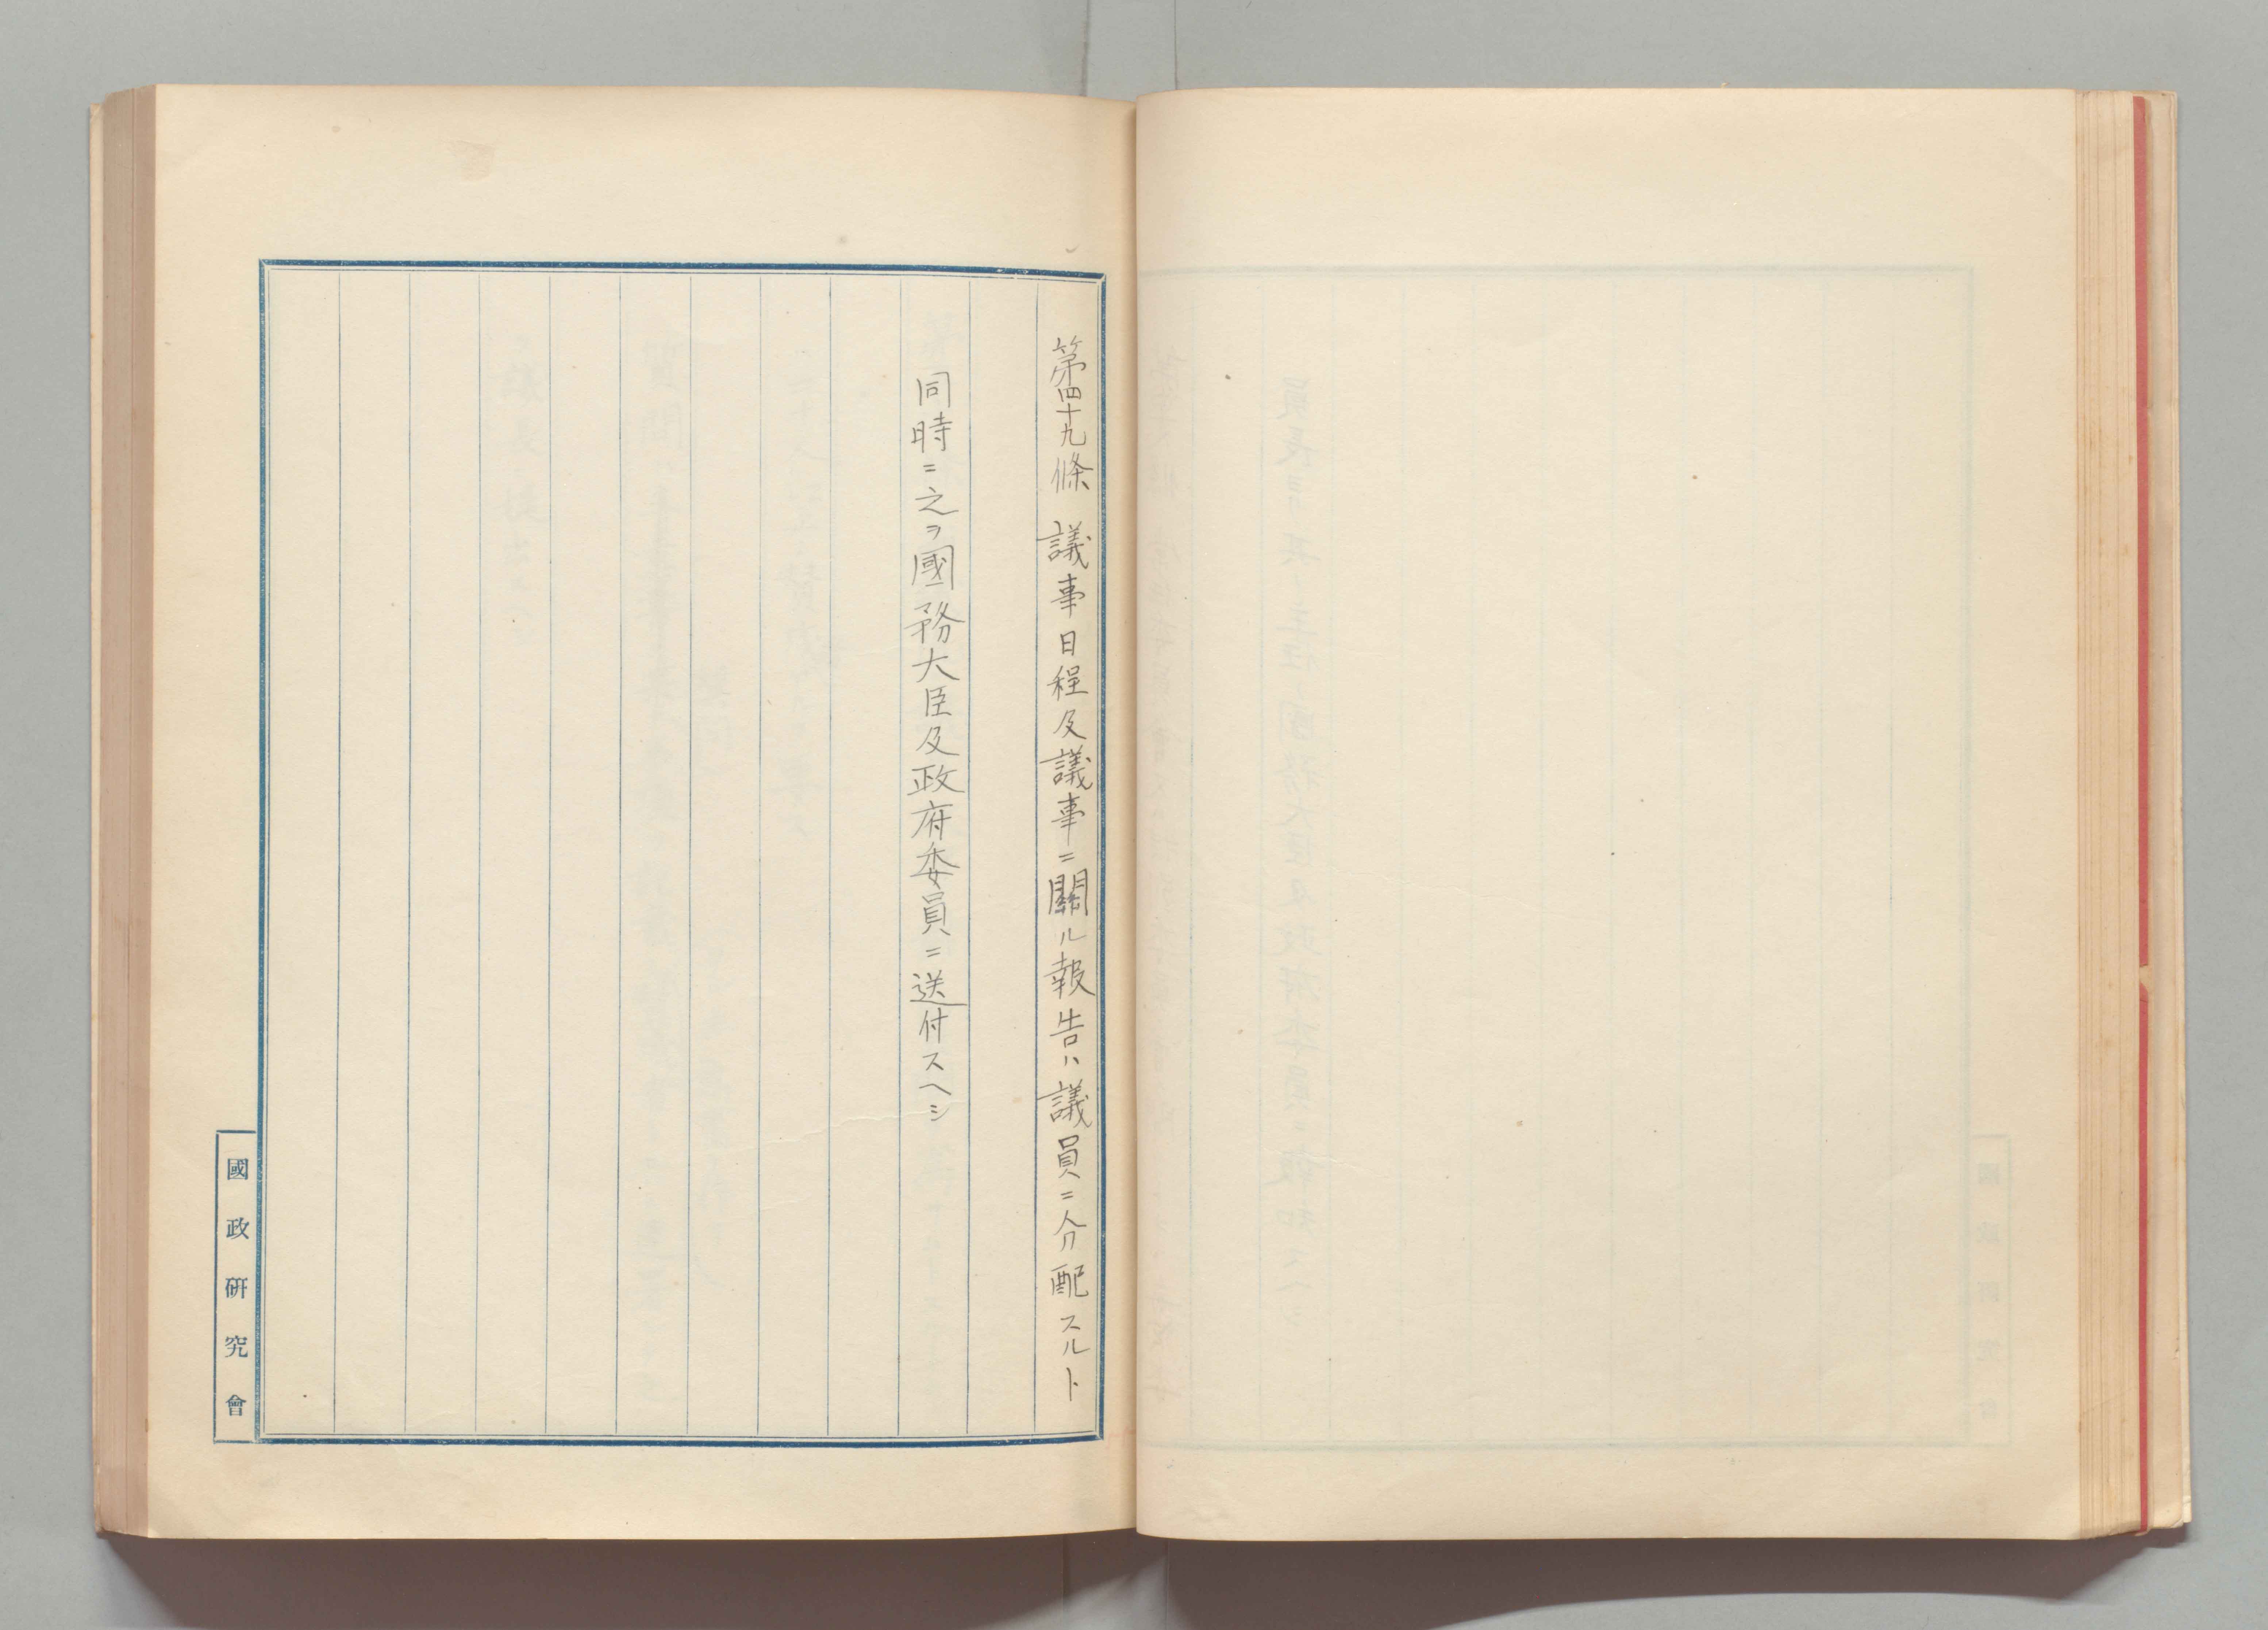 第四十九條 議事日程及議事ニ關ル報告ハ議員ニ分配スルト
同時ニ之ヲ國務大臣及政府委員ニ送付スヘシ
國政硏究會